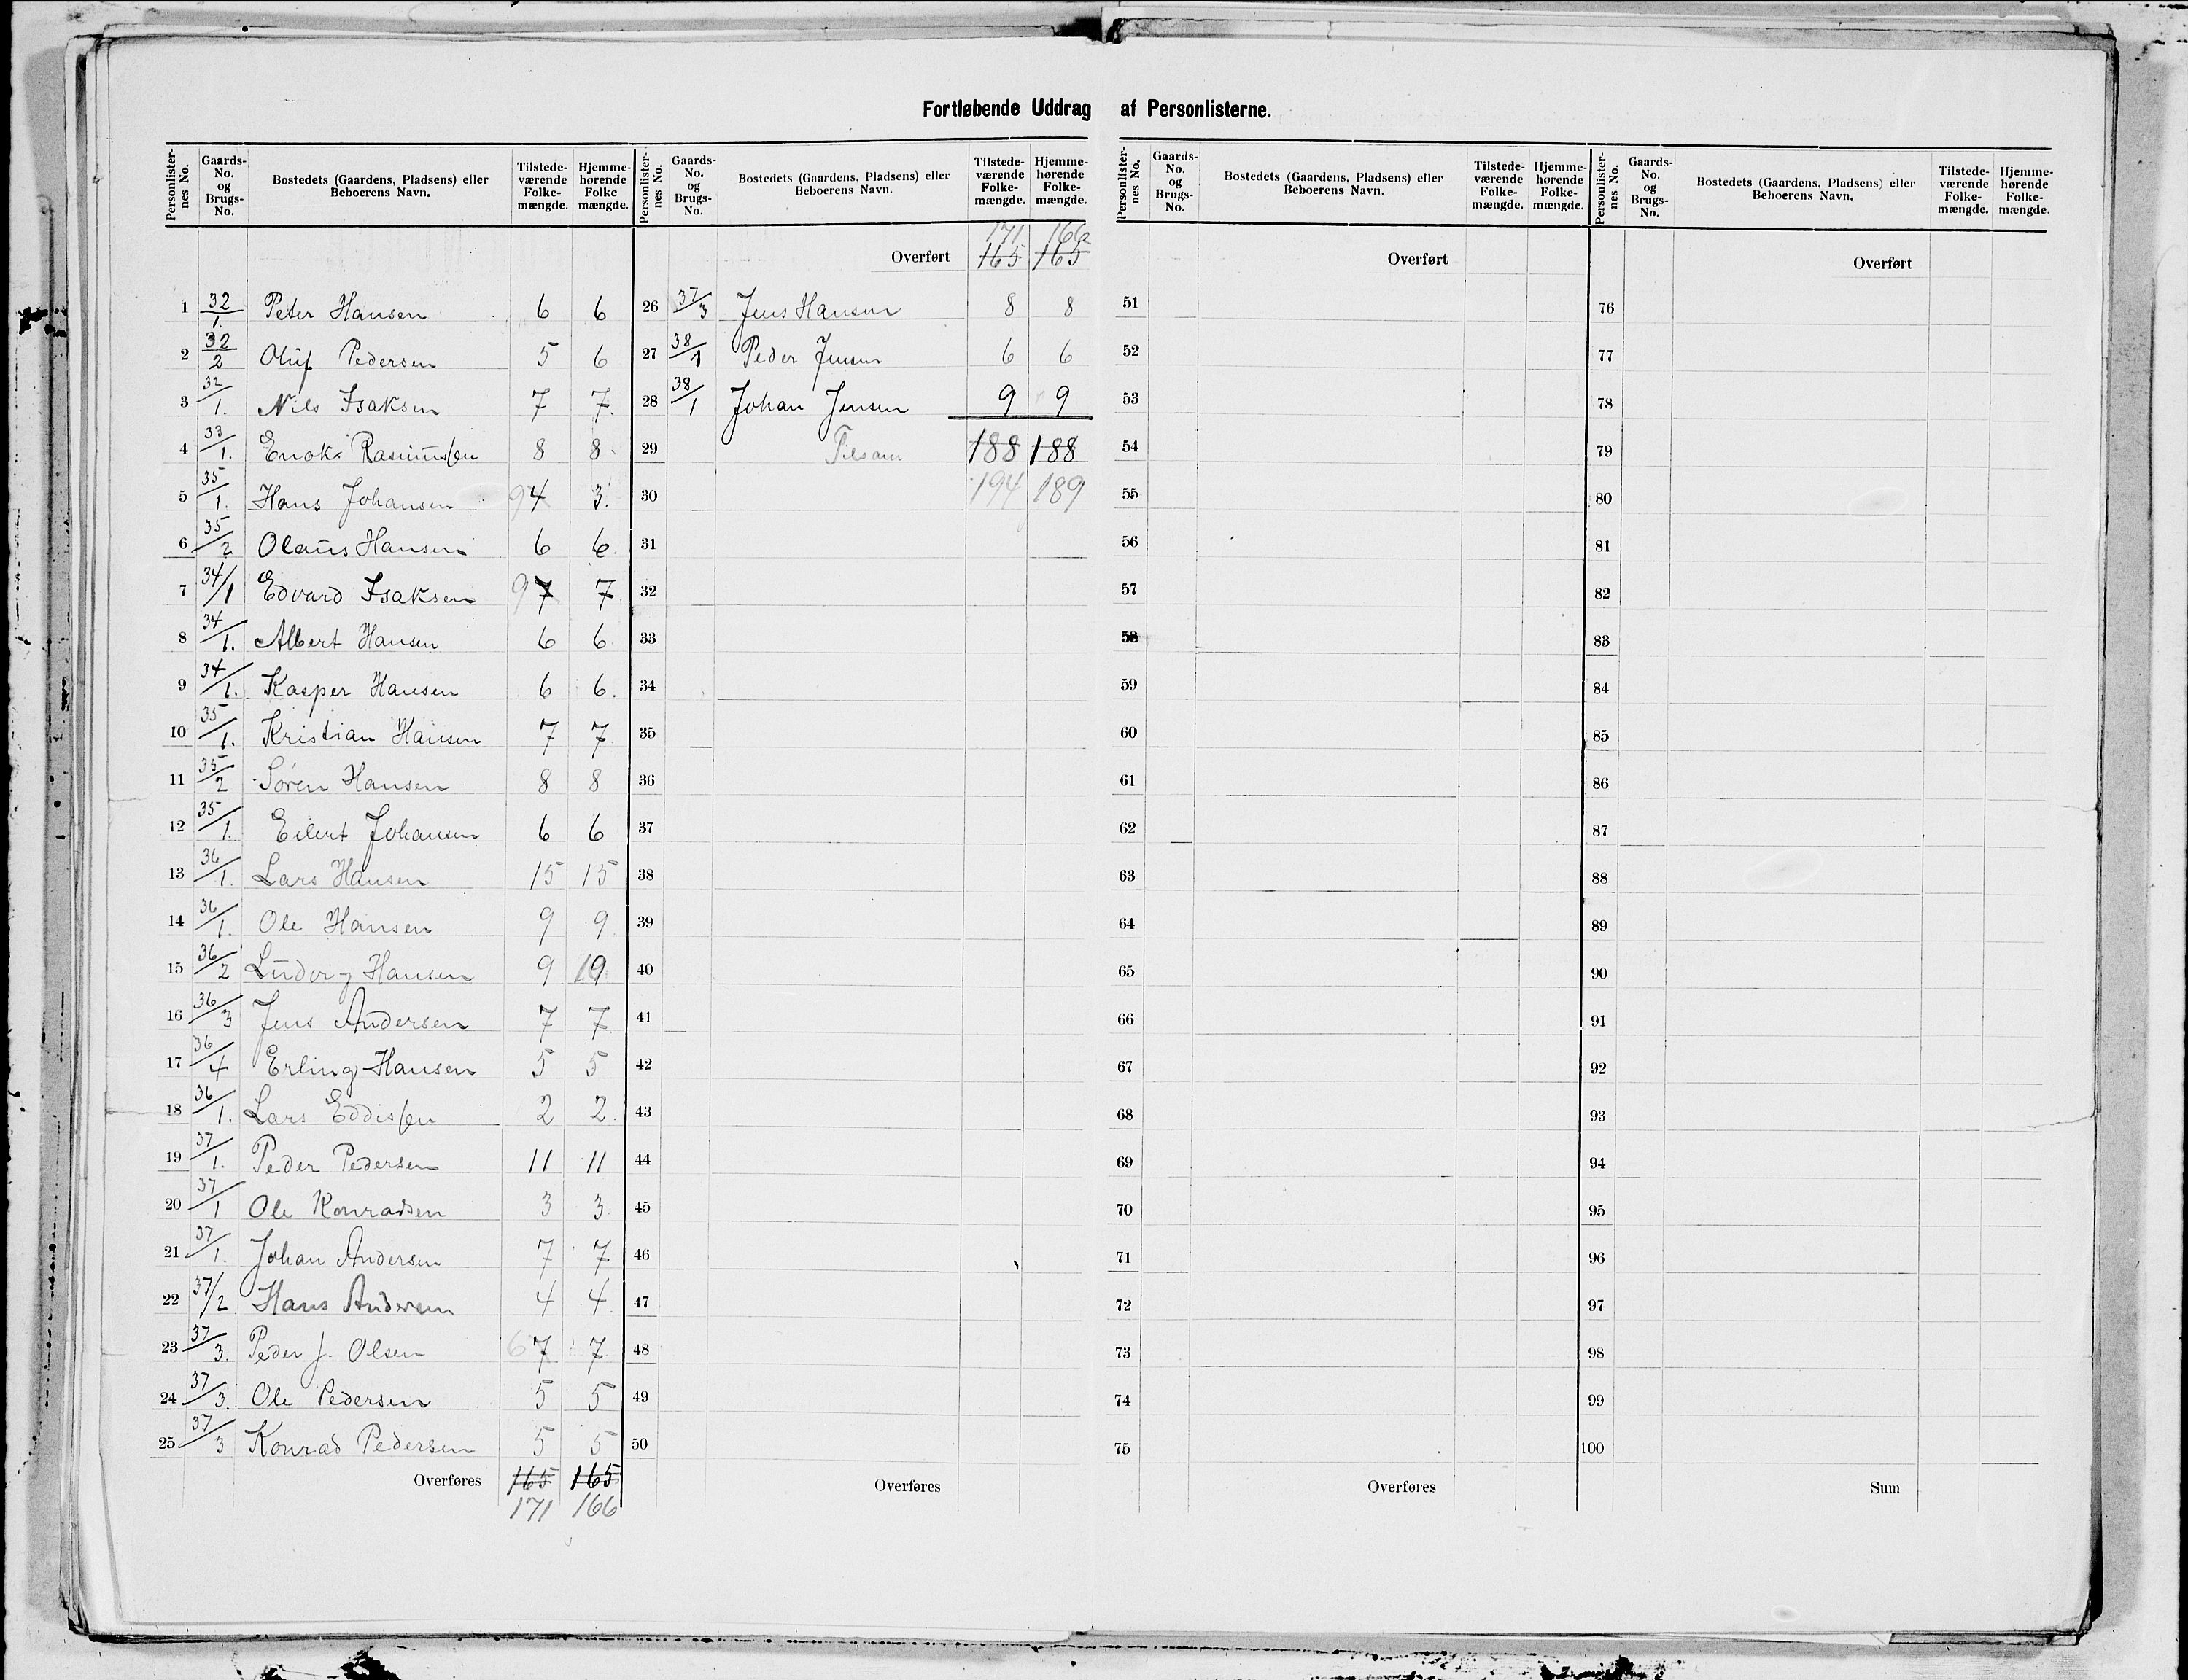 Fortløbende Uddrag af Personlisterne.
Personlister-nes No. Gaards-No. og Brugs-No. Bostedets (Gaardens, Pladsens) eller Beboerens Navn. Tilstede-værende Folke-mængde. Hjemme-hørende Folke mængde.
1 32/1. Peter Hansen 6 6
2 32/2 Oluf Pedersen 5 6
3 32/1. Nils Isaksen 7 7.
4 33/1. Enok Rasmussen 8 8
5 35/1. Hans Johansen 9 4 3.
6 35/2 Olaus Hansen 6 6.
7 34/1 Edvard Isaksen 9 7 7
8 34/1. Albert Hansen 6 6
9 34/1. Kasper Hansen 6 6.
10 35/1. Kristian Hansen 7 7
11 35/2 Sören Hansen 8 8
12 35/1. Eilert Johansen 6 6
13 36/1. Lars Hansen 15 15
14 36/1. Ole Hansen 9 9
15 36/2 Ludvig Hansen 9 19
16 36/3 Jens Andersen 7 7
17 36/4 Erling Hansen 5 5
18 36/1. Lars Eddissen 2 2.
19 37/1. Peder Pedersen 11 11
20 37/1 Ole Konradsen 3 3
21 37/1. Johan Andersen 7 7
22 37/2 Hans Andersen 4 4
23 37/3. Peder J. Olsen 6 7 7
24 37/3. Ole Pedersen 5 5
25 37/3 Konrad Pedersen 5 5
Overføres 165 165
171 166
Personlister-nes No. Gaards-No. og Brugs-No. Bostedets (Gaardens, Pladsens) eller Beboerens Navn. Tilstede-værende Folke-mængde. Hjemme-hørende Folke-mængde.
171 166
Overført 165 165
26 37/3 Jens Hansen 8 8
27 38/1 Peder Jensen 6 6
28 38/1 Johan Jensen 9 9
29 Tilsam 188 188
30 194 189
31
32
33
34
35
36
37
38
39
40
41
42
43
44
45
46
47
48
49
50
Overføres
Personlister-nes No. Gaards-No. og Brugs-No. Bostedets (Gaardens, Pladsens) eller Beboerens Navn. Tilstede-værende Folke-mængde. Hjemme-hørende Folke-mængde.
Overført
51
52
53
54
55
56
57
58
59
60
61
62
63
64
65
66
67
68
69
70
71
72
73
74
75
Overføres
Personlister-nes No. Gaards-No. og Brugs-No. Bostedets (Gaardens, Pladsens) eller Beboerens Navn. Tilstede-værende Folke-mængde. Hjemme-hørende Folke-mængde.
Overført
76
77
78
79
80
81
82
83
84
85
86
87
88
89
90
91
92
93
94
95
96
97
98
99
100
Sum